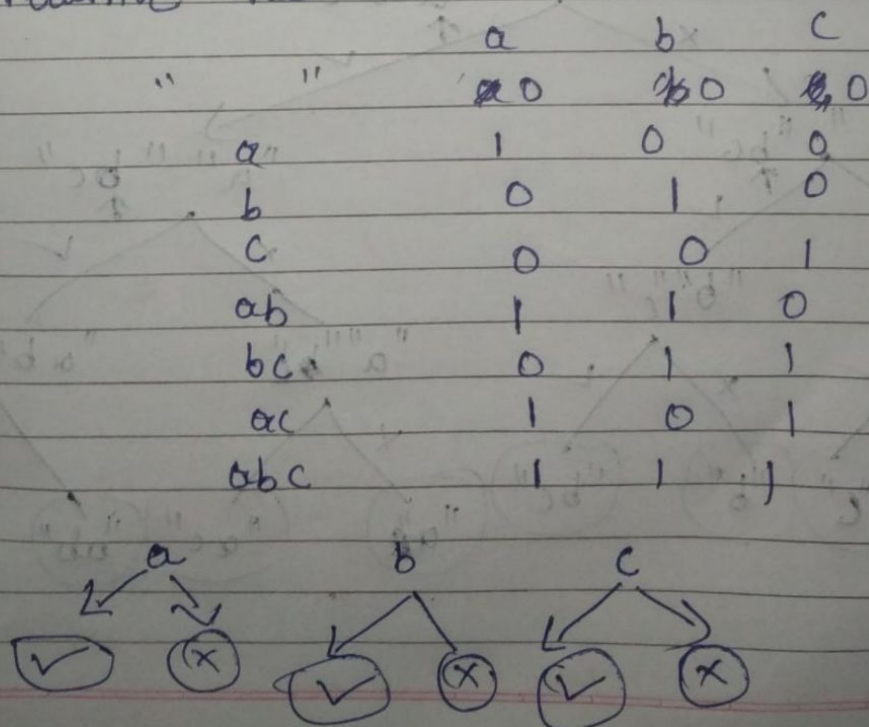 a b c
" " 0 0 0
a 1 0 0
b 0 1 0
c 0 0 1
ab 1 1 0
bc 0 1 1
ac 1 0 1
abc 1 1 1
a b c
✓ x ✓ x ✓ x